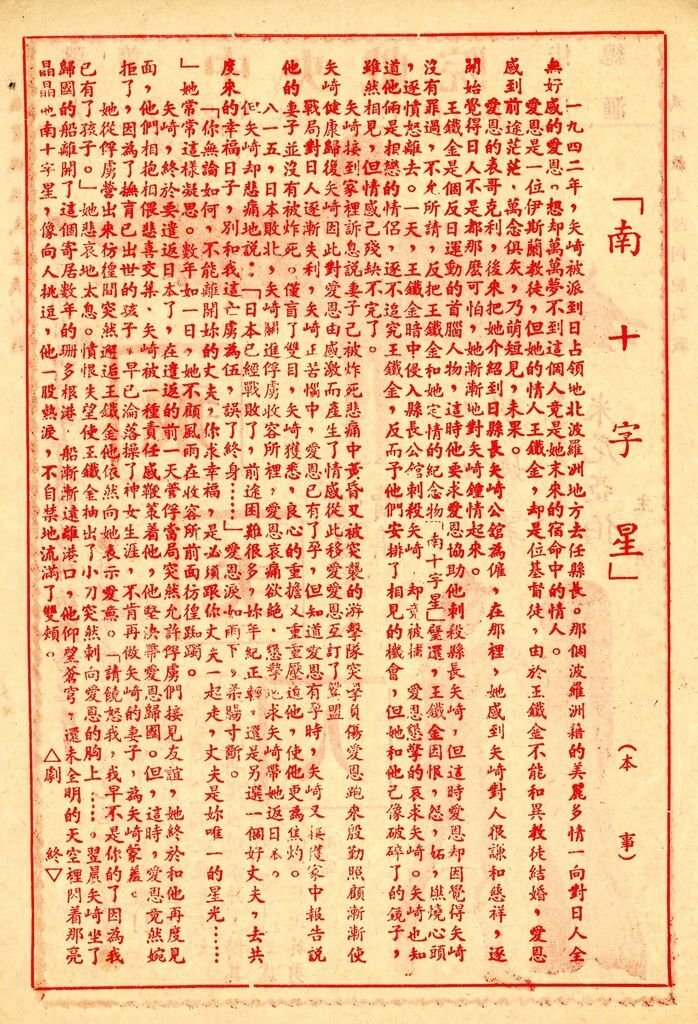 「南十字星」　（本事）
一九四二年，矢崎被派到日占領地北波羅洲地方去任縣長。那個波羅洲籍的美麗多情一向對日人全
無好感的愛恩。想却萬萬夢不到這個人竟是她末來的宿命中的情人。
愛恩是一位伊斯蘭教徒，但她的情人王鐵金，却是位基督徒，由於王鐵金不能和異教徒結婚，愛恩
感到前途茫茫，萬念俱灰，乃萌短見，未果。
愛恩的表哥克利，後來把她介紹到日縣長矢崎公館為傭，在那裡，她感到矢崎對人很謙和慈祥，逐
開始覺得日人不是都那麼可怕，她漸漸地對矢崎鍾情起來。
王鐵金是個反日運動的首腦人物，這時他要求愛恩協助他刺殺縣長矢崎，但這時愛恩却因覺得矢崎
沒有罪過，不允所請，反把王鐵金和她定情的紀念物「南十字星」璧還，王鐵金因恨，怨，妬，燃燒心頭
，逐憤怒離去。一天，王鐵金暗中侵入縣長公館刺殺矢崎，却竟被捕，愛恩懇摯的哀求矢崎。矢崎也知
道他倆是相戀的情侶，逐不追究王鐵金，反而予他們安排了相見的機會，但她和他已像破碎了的鏡子，
雖然相見，但情感已殘缺不完了。
矢崎接到家裡訴息說妻子已被炸死悲痛中黃昏又被突襲的游擊隊突擊負傷愛恩跑來殷勤照顧漸漸使
矢崎健康歸復矢崎因此對愛恩由感激而產生了情感從此移愛愛恩互訂了鴛盟
戰局對日人逐漸失利，矢崎正苦惱中，愛恩已有了孕，但知道愛恩有孕時，矢崎又接獲家中報告說
他的妻子並沒有被炸死。僅盲了雙目，矢崎獲悉，良心的重擔又重重壓迫他，使他更為焦灼。
八一五，日本敗北，矢崎關進俘虜收容所裡，愛恩哀痛欲絕，懇摯地求矢崎帶她返日本。
但矢崎却悲痛地說：「日本已經戰敗了，前途困難很多，妳年紀正輕，還是另選一個好丈夫，去共
度來的幸福日子，別和我這亡虜為伍，誤了終身……」愛恩淚如雨下，柔腸寸斷。
「你無論如何，不能離開妳的丈夫，你求幸福，是必須跟你丈夫一起走，丈夫是妳唯一的星光……
」她常常這樣凝思。數年如一日，她不顧風雨在收容所前面彷徨踟躅。
矢崎，終於要遣返日本了，在遣返的前一天管俘當局突然允許俘虜們接見友誼，她終於和他再度見
面，他們相抱相偎悲喜交集，矢崎被一種責任感鞭策着他，他堅決帶愛恩歸國。但，這時，愛恩竟然婉
拒了，因為了撫育已出世的孩子，早已淪落操了神女生涯，不肯再做矢崎的妻子，為矢崎蒙羞。
她從俘虜營出來彷徨間突然邂逅王鐵金他依然向她表示愛意。「請饒恕我，我早不是你的了因為我
已有了孩子。」她悲哀地太息。憤恨失望使王鐵金抽出了小刀突然刺向愛恩的胸上……。翌晨矢崎坐了
歸國的船離開了這個寄居數年的珊多根港，船漸漸遠離港口，他仰望蒼穹，還未全明的天空裡閃着那亮
晶晶地南十字星，像向人挑逗，他一股熱淚，不自禁地流滿了雙頰。　△劇　終▽